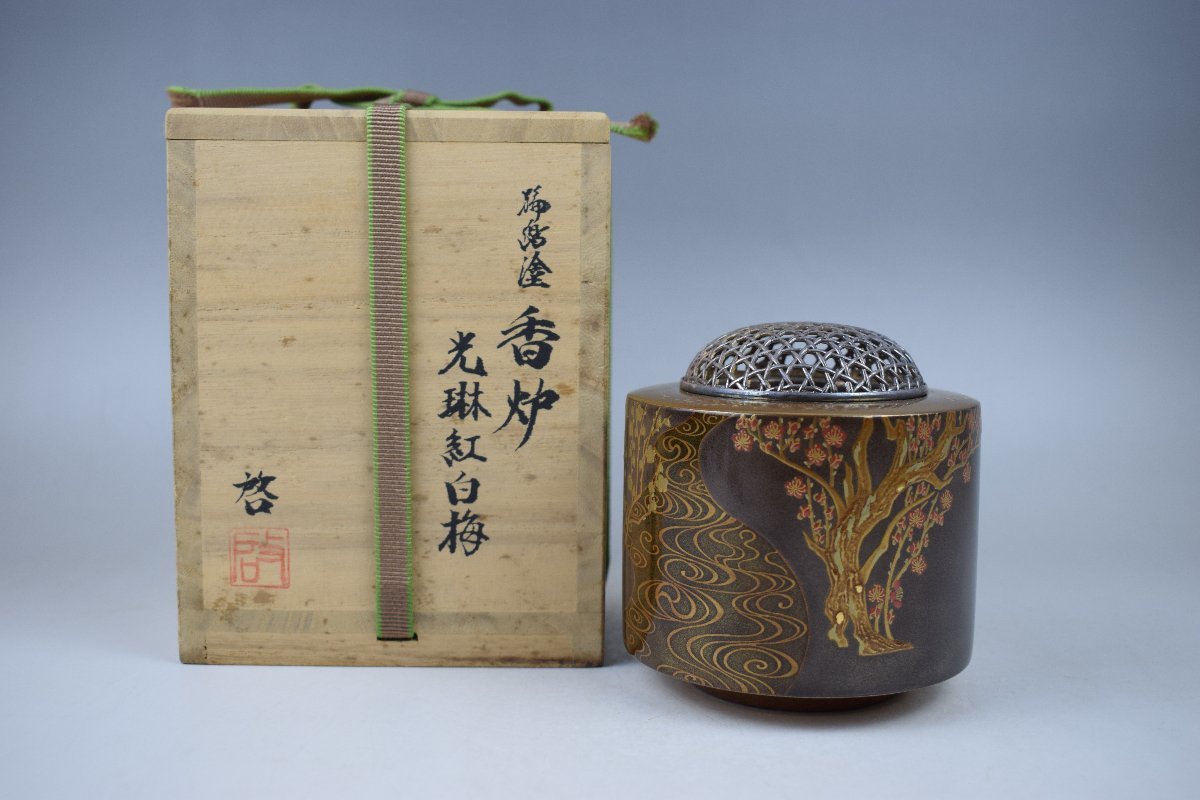 輪島塗
香炉
光琳紅白梅
啓
啓